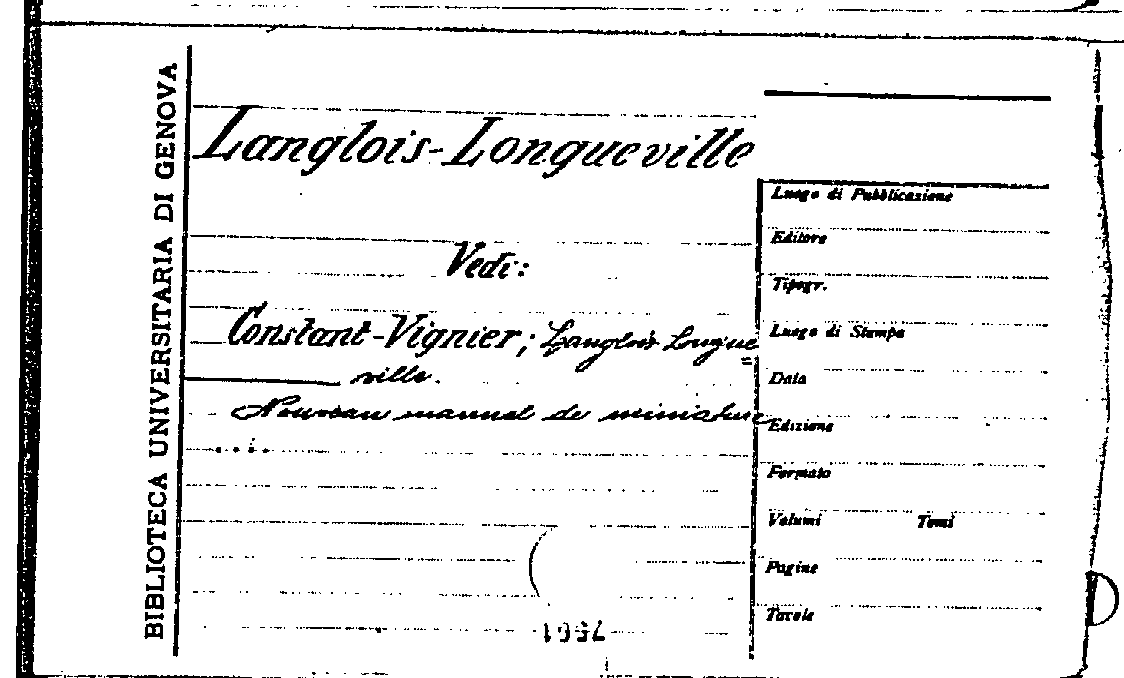 BIBLIOTECA UNIVERSITARIA DI GENOVA
Langlois-Longueville
Vedi:
Constant-Vignier; Langlois Longue=
ville.
Nouveau manuel de miniature
....
Luogo di Pubblicazione
Editore
Tipogr.
Luogo di Stampa
Data
Edizione
Formato
Volumi Tomi
Pagine
Tavole